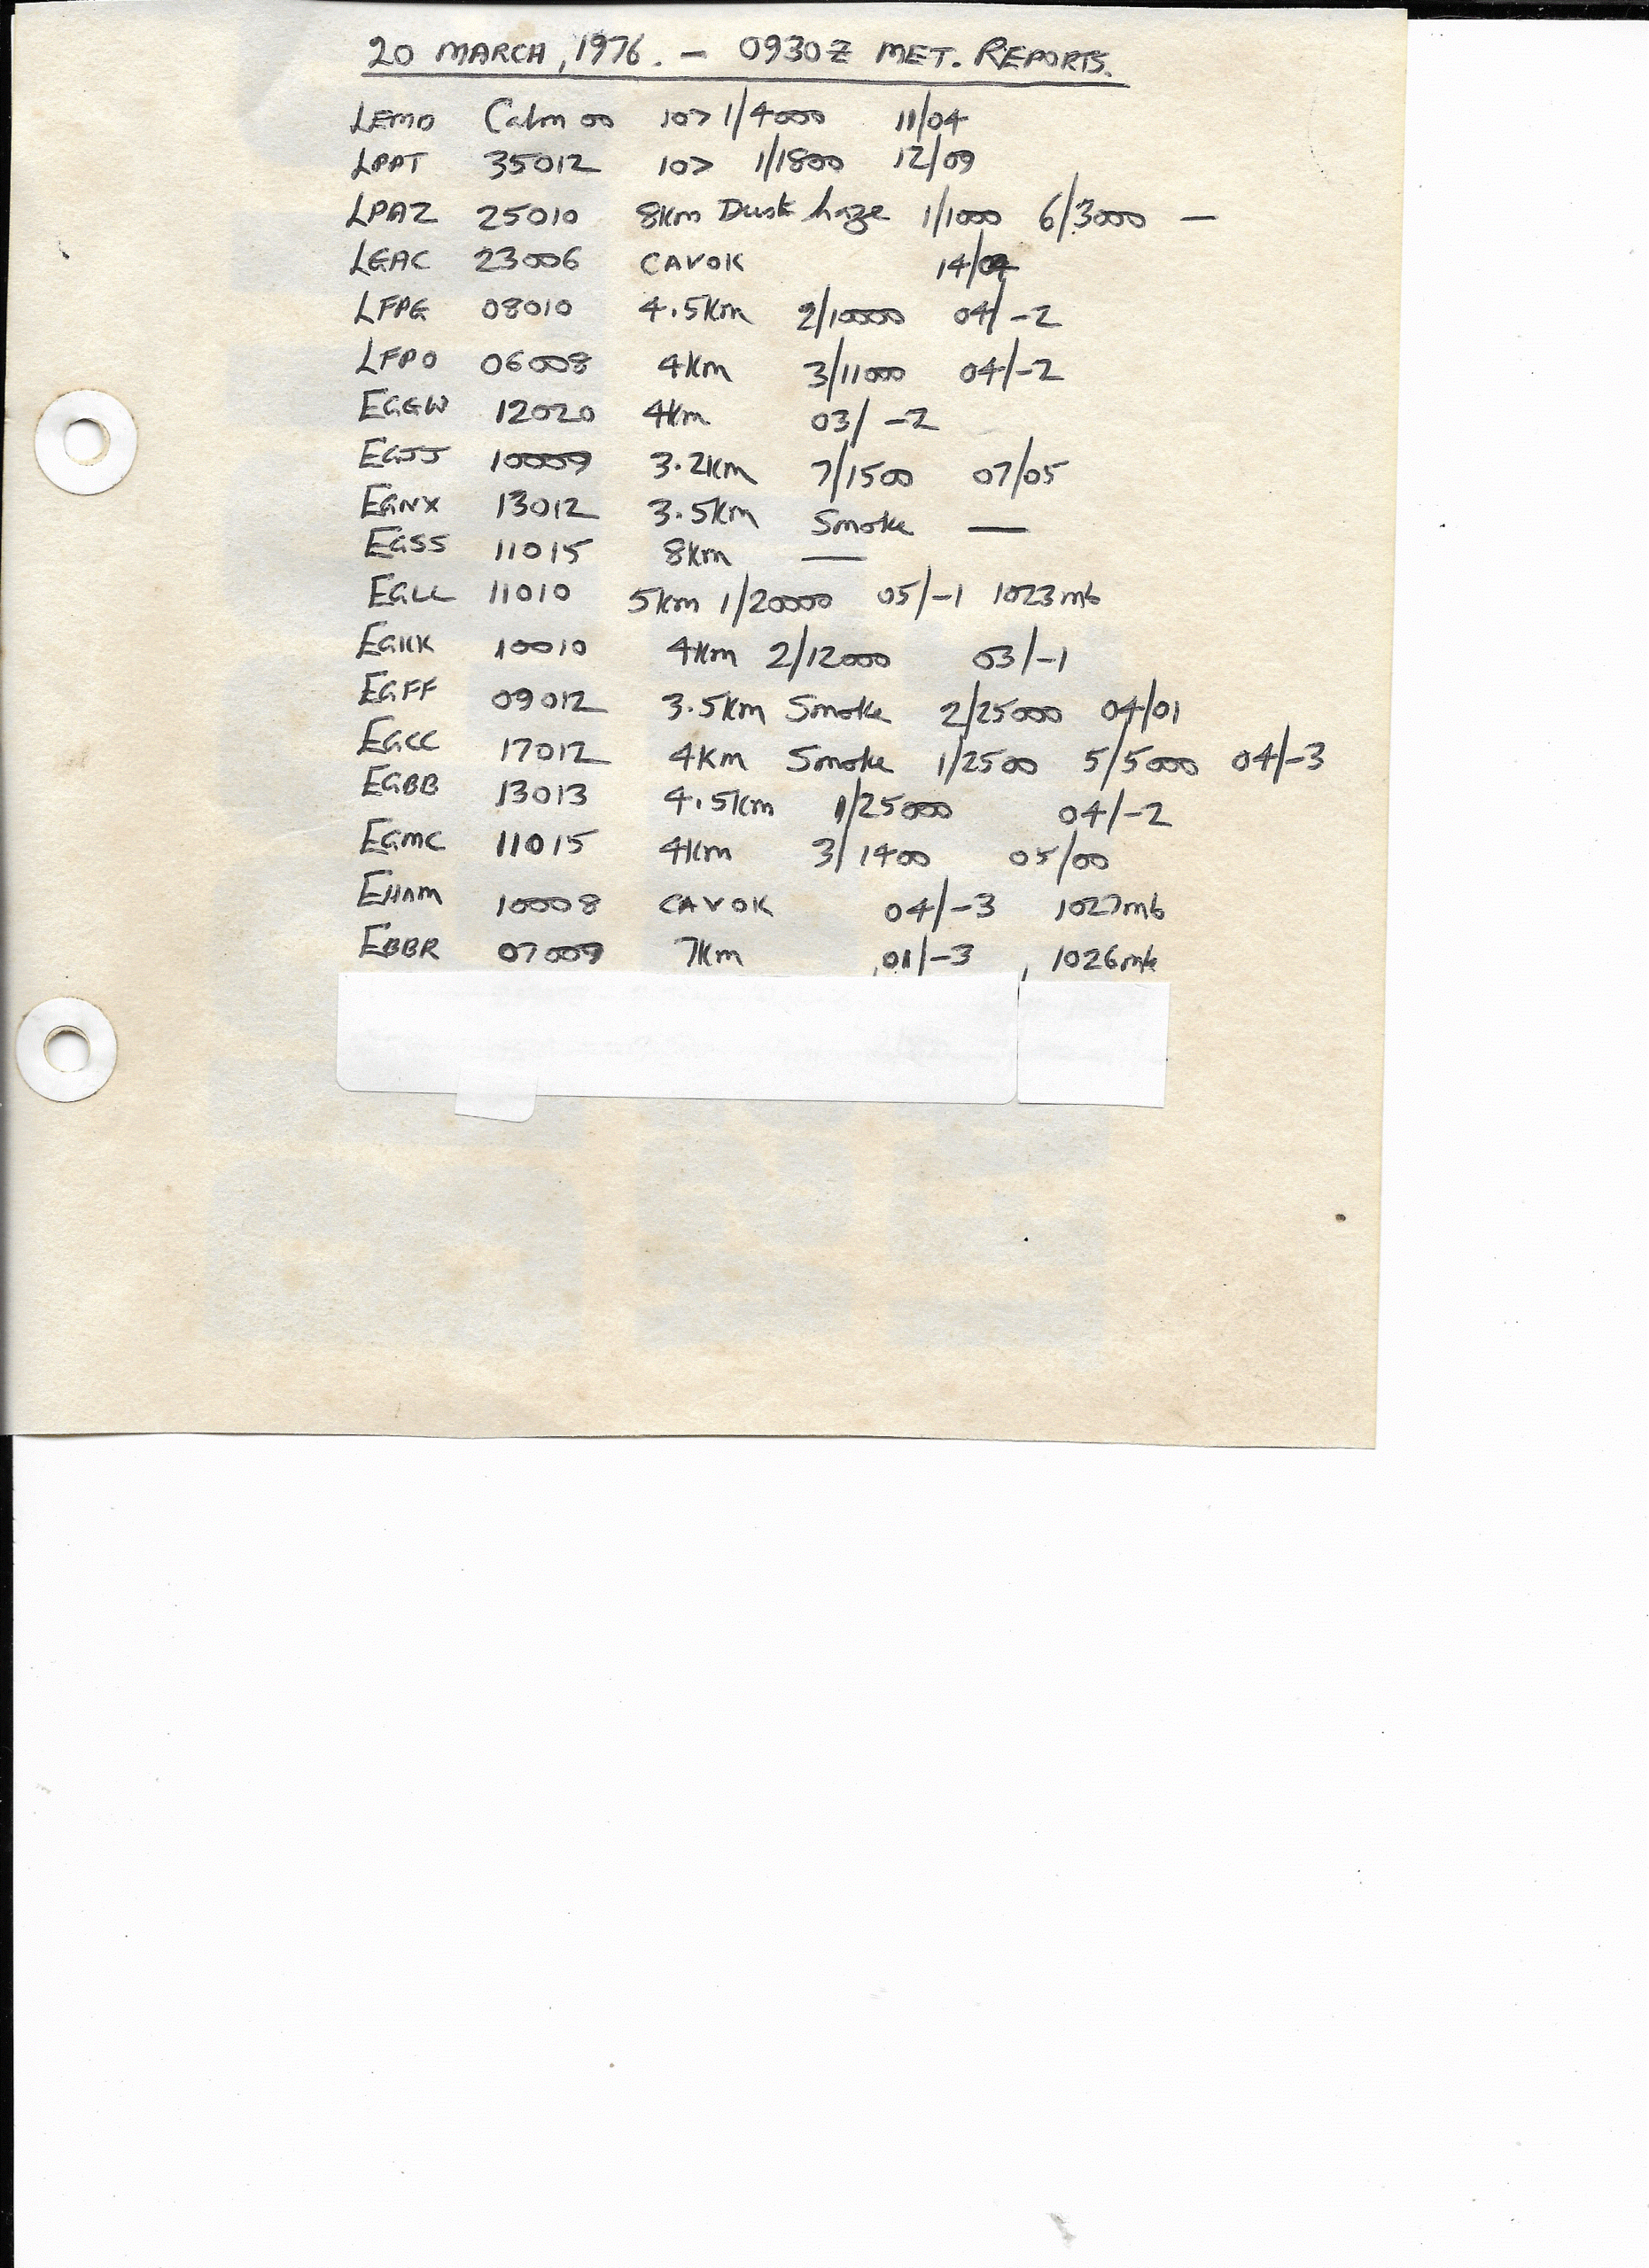 20 MARCH, 1976. – 0930Z MET. REPORTS.
LEMD Calm 00 10> 1/4000 11/04
LPPT 35012 10> 1/1800 12/09
LPAZ 25010 8Km Dust haze 1/1000 6/3000 —
LGAC 23006 CAVOK 14/04
LFPG 08010 4.5Km 2/10000 04/-2
LFPO 06008 4Km 3/11000 04/-2
EGGW 12020 4Km 03/-2
EGJJ 10009 3.2Km 7/1500 07/05
EGNX 13012 3.5Km Smoke —
EGSS 11015 8Km —
EGLL 11010 5Km 1/20000 05/-1 1023mb
EGKK 10010 4Km 2/12000 03/-1
EGFF 09012 3.5Km Smoke 2/25000 04/01
EGCC 17012 4Km Smoke 1/2500 5/5000 04/-3
EGBB 13013 4.5Km 1/25000 04/-2
EGMC 11015 4Km 3/1400 05/00
EHAM 10008 CAVOK 04/-3 1027mb
EBBR 07009 7Km 01/-3 1026mb